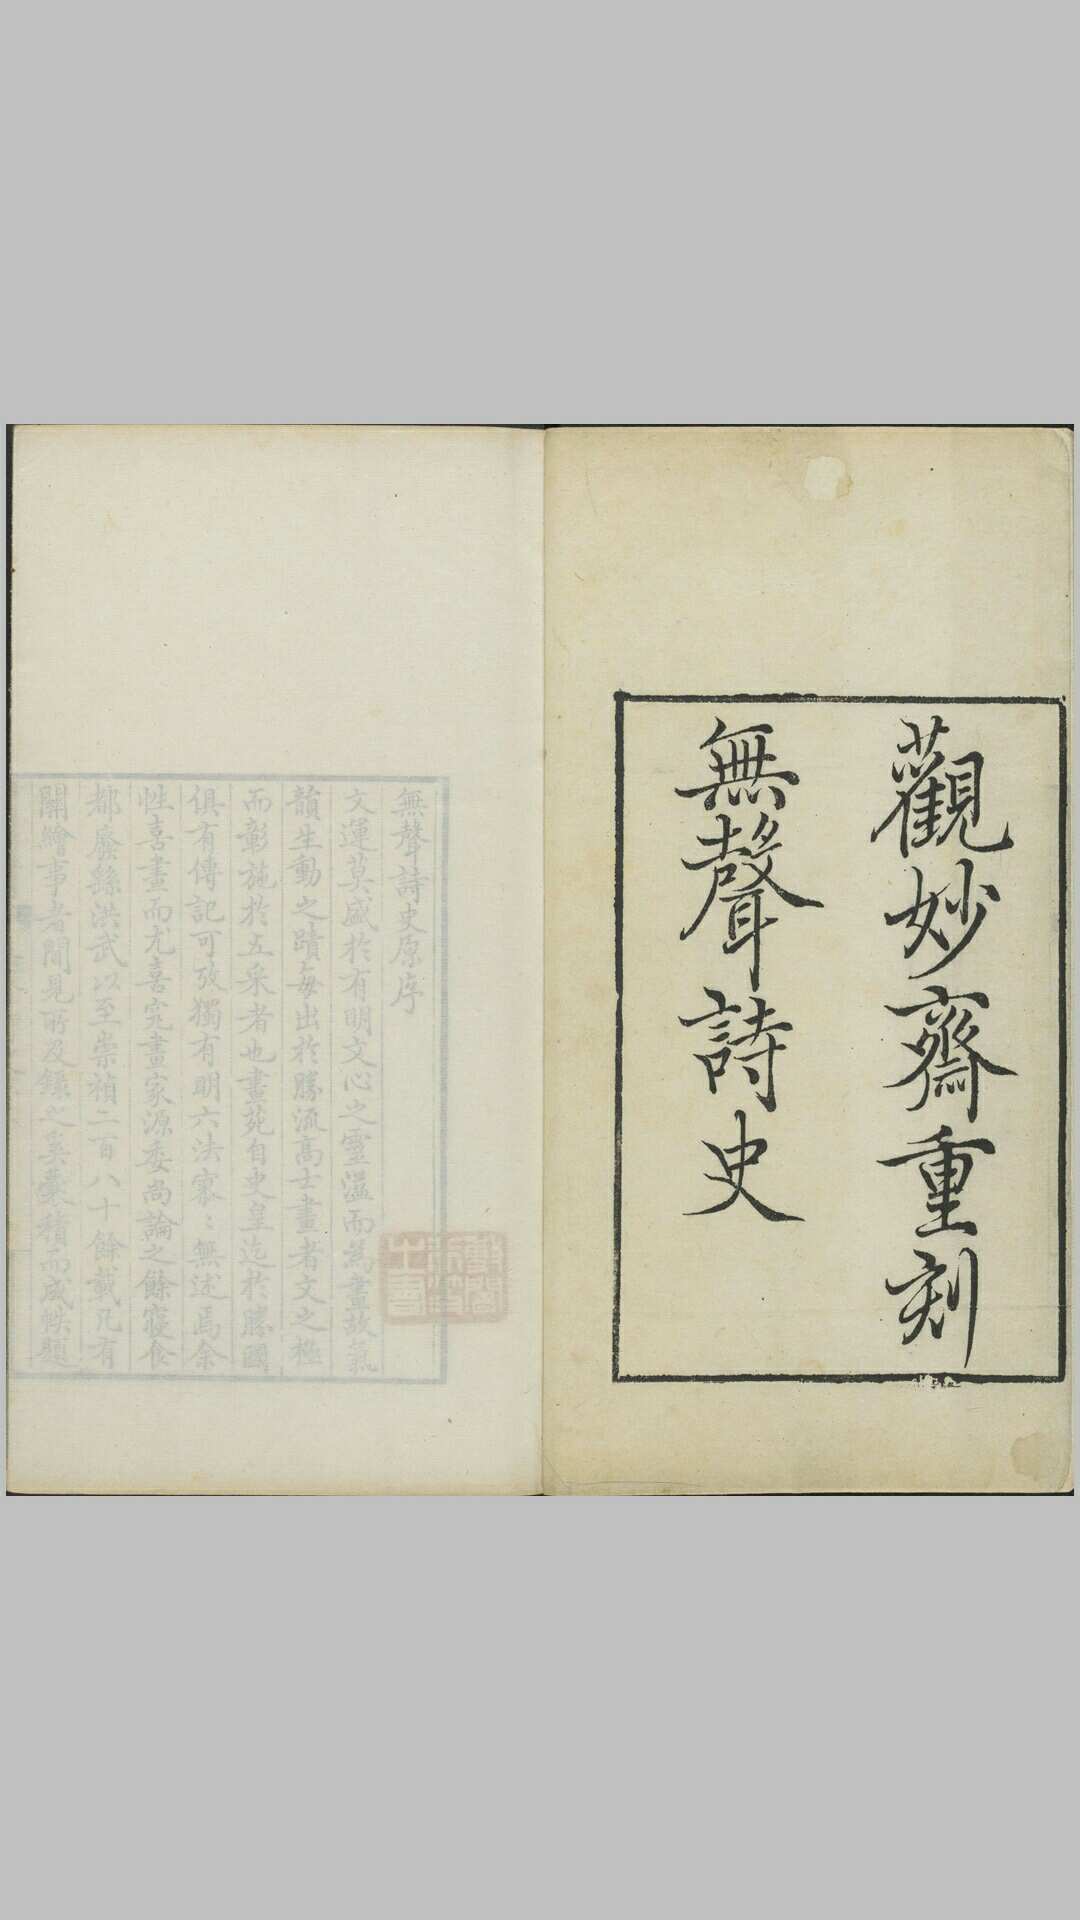 觀妙齋重刻
無聲詩史
無聲詩史原序
文運莫盛於有明文心之靈溢而為畫故氣
韻生動之蹟每出於勝流高士畫者文之極
而彰施於五采者也畫苑自史皇迄於勝國
俱有傳記可攷獨有明六法寥：無述焉余
性喜畫而尤喜究畫家源委尚論之餘寢食
都廢繇洪武以至崇禎二百八十餘載凡有
關繪事者聞見所及錄之奚囊積而成帙題